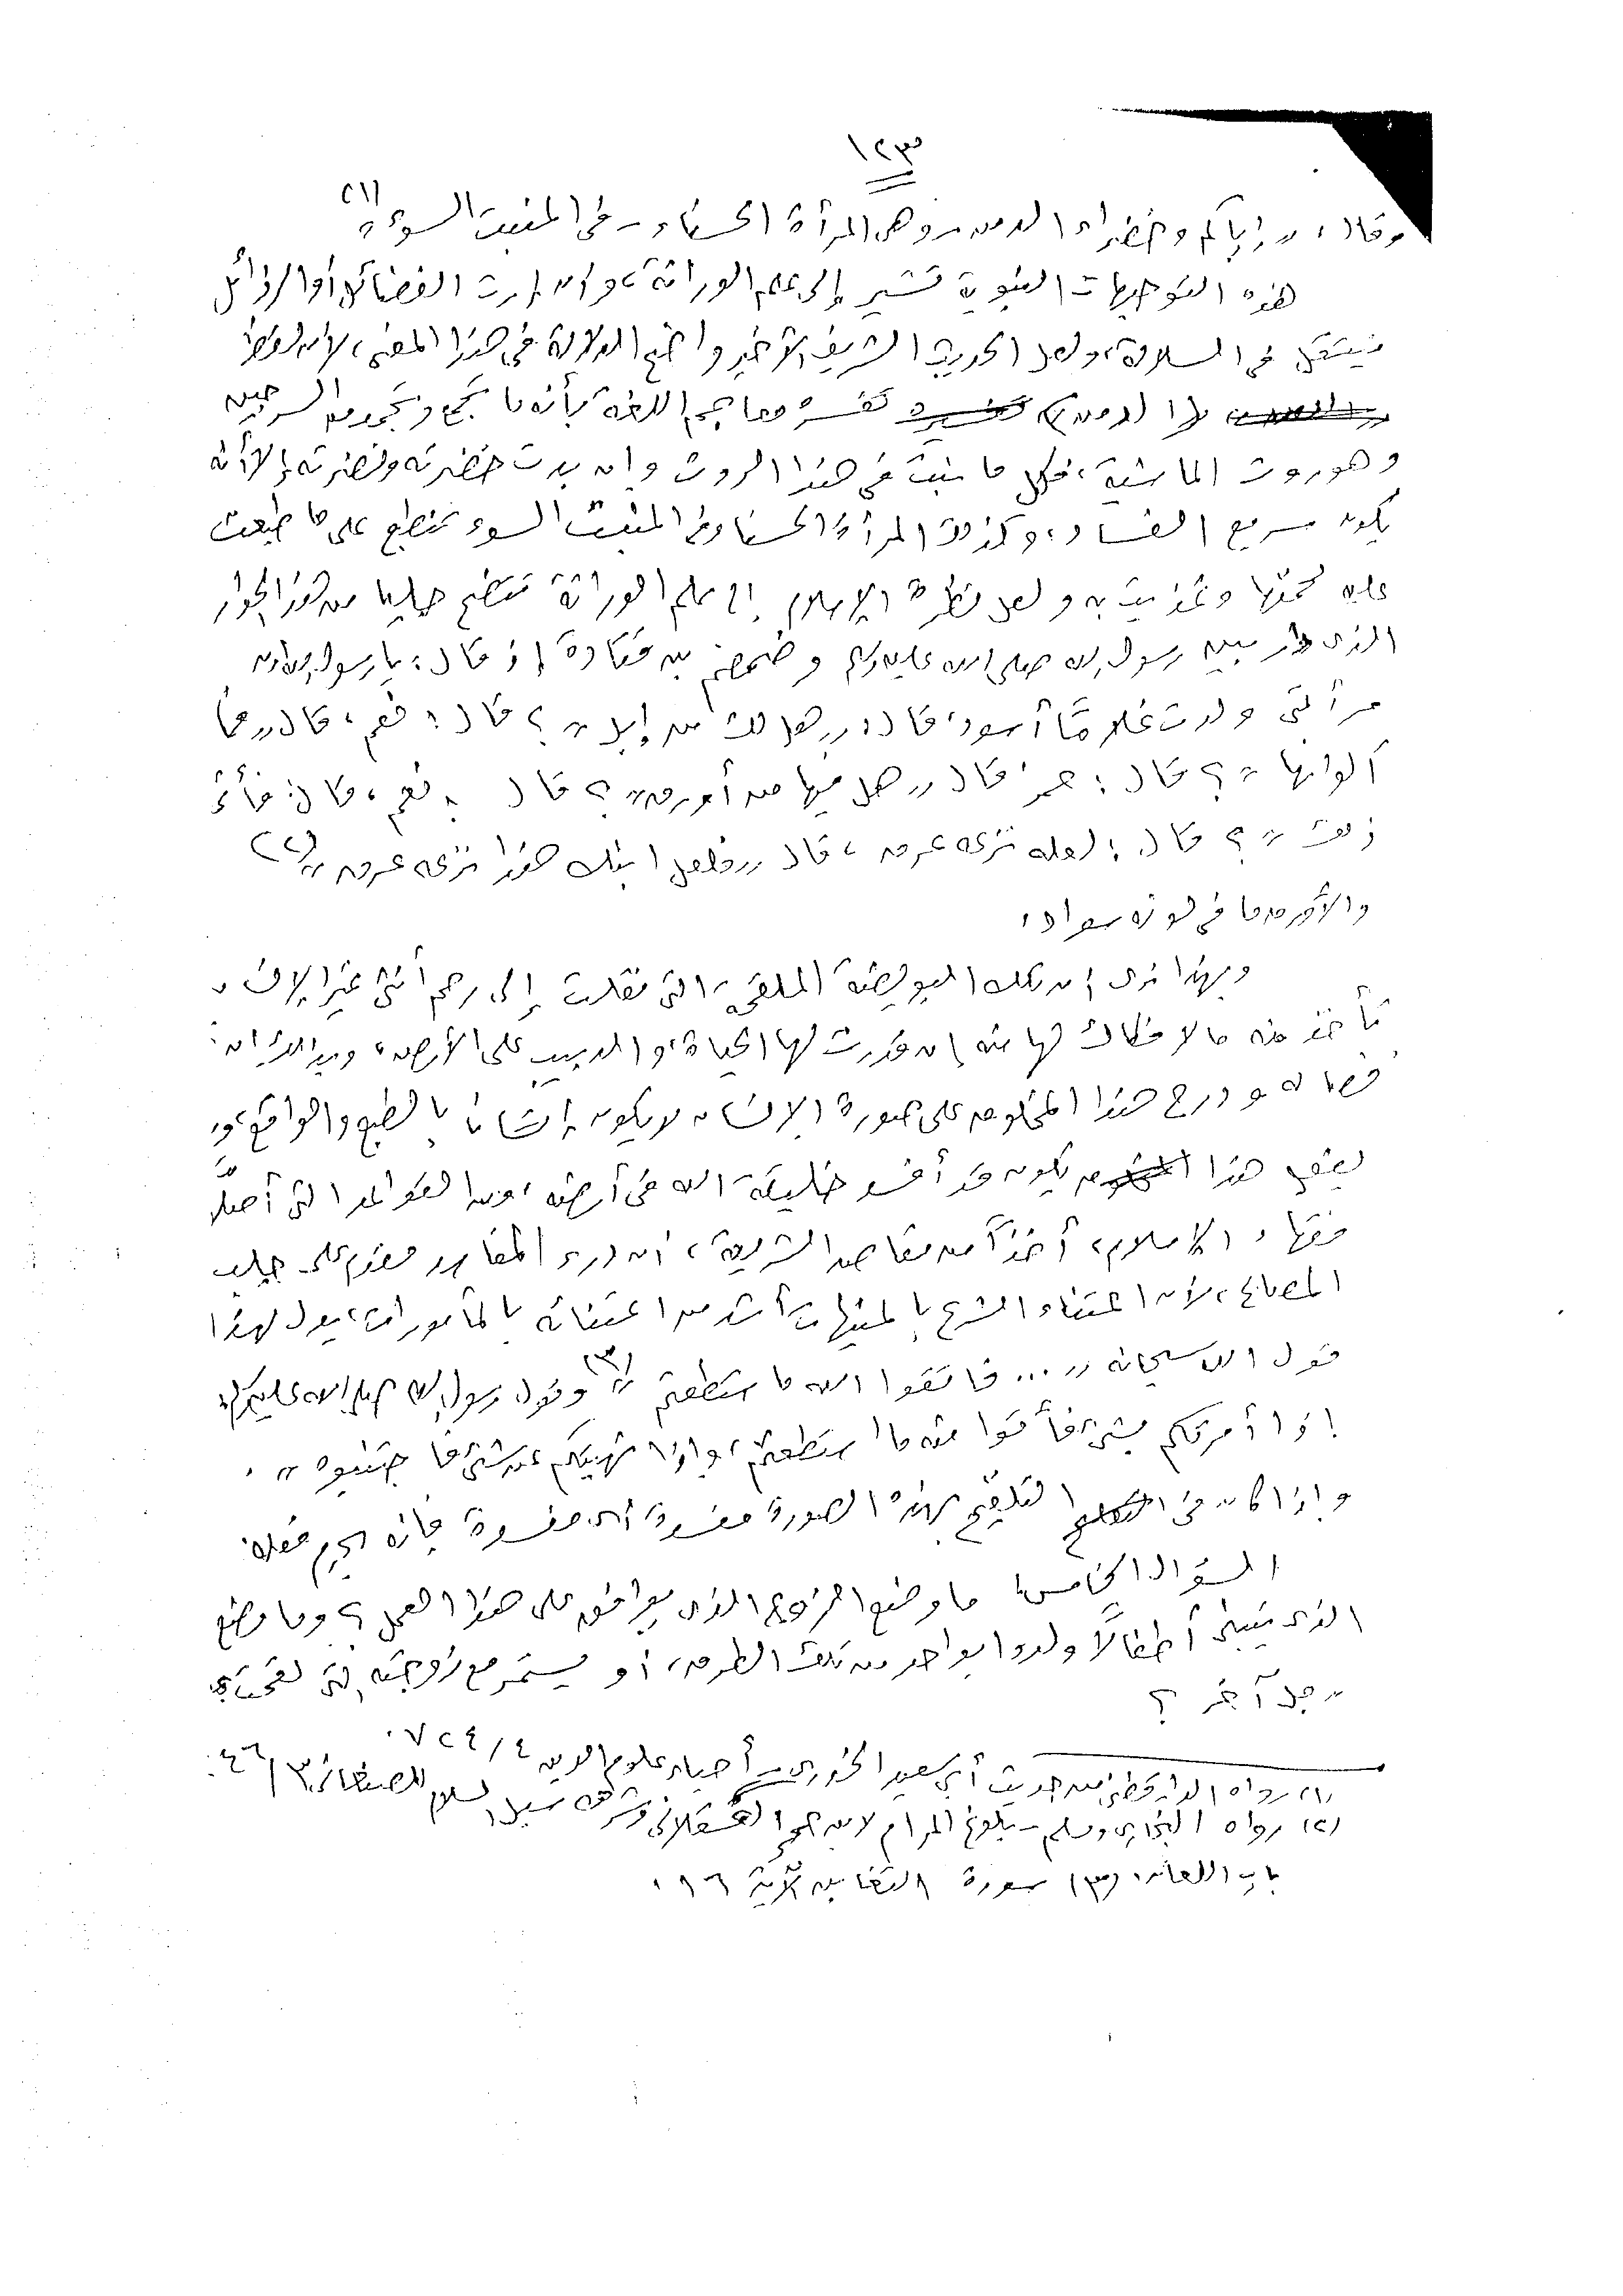 ١٢٣
وقال: "إياكم وخضراء الدمن - وهى المرأة الحسناء - فى المنبت السوء" (١)
هذه التوجيهات النبوية تشير إلى علم الوراثة، وأن إرث الفضائل أو الرذائل
ينتقل فى السلالة، ولعل الحديث الشريف الأخير واضح الدلالة فى هذا المعنى، لأن لفظ
(الدمن) تفسره معاجم اللغة بأنه ما تجمع وتجمد من السرجين
وهو روث الماشية، فكل ما نبت فى هذا الروث وإن بدت خضرته ونضرته إلا أنه
يكون سريع الفساد، وكذلك المرأة الحسناء فى المنبت السوء تنطبع على ما طبعت
عليه لحمتها وغذيت به ولعل نظرة الإسلام إلى علم الوراثة تتضح جليا من هذا الحوار
الذى دار بين رسول الله صلى الله عليه وسلم وضمضم بن قتادة إذ قال: يا رسول الله إن
امرأتى ولدت غلامًا أسود، قال: "هل لك من إبل"؟ قال: نعم، قال "فما
ألوانها"؟ قال: حمر، قال "هل فيها من أورق"؟ قال: نعم، قال: فأنى
ذلك"؟ قال: لعله نزعه عرق، قال "فلعل ابنك هذا نزعه عرق" (٢)
والأورق ما فى لونه سواد،
وبهذا نرى أن تلك البويضة الملقحة، التى نقلت إلى رحم أنثى غير الإنسان
تأخذ منه ما لا فكاك لها منه إن قدرت لها الحياة، والدبيب على الأرض،
فصاله ودرج هذا المخلوق على صورة الإنسان لا يكون إنسانا بالطبع والواقع، ومن
يفعل هذا يكون قد أفسد خليقة الله فى أرضه، ومن القواعد التى أصلها
فقهاء الإسلام، أخذًا من مقاصد الشريعة، أن درء المفاسد مقدم على جلب
المصالح، لأن اعتناء الشرع بالمنهيات أشد من اعتنائه بالمأمورات، يدل لهذا
قول الله سبحانه "... فاتقوا الله ما استطعتم" (٣) وقول رسول الله صلى الله عليه وسلم
إذا أمرتكم بشئ فأتوا منه ما استطعتم، وإذا نهيتكم عن شئ فاجتنبوه".
وإذا كان فى التلقيح بهذه الصورة مفسدة أى مفسدة فإنه يحرم فعله.
السؤال الخامس: ما وضع الزوج الذى يوافق على هذا العمل؟ وما وضع
الذى يتبنى أطفالًا ولدوا بواحد من تلك الطرق، أو يستمر مع زوجته التى لقحت بمنى
رجل آخر؟
(١) رواه الدارقطنى من حديث أبى سعيد الخدرى - أحياء علوم الدين ٤/٧٢٤.
(٢) رواه البخارى ومسلم - بلوغ المرام لابن حجر العسقلانى وشرحه سبل السلام للصنعانى ٣/٢٤٦.
باب اللعان. (٣) سورة التغابن الآية ١٦.